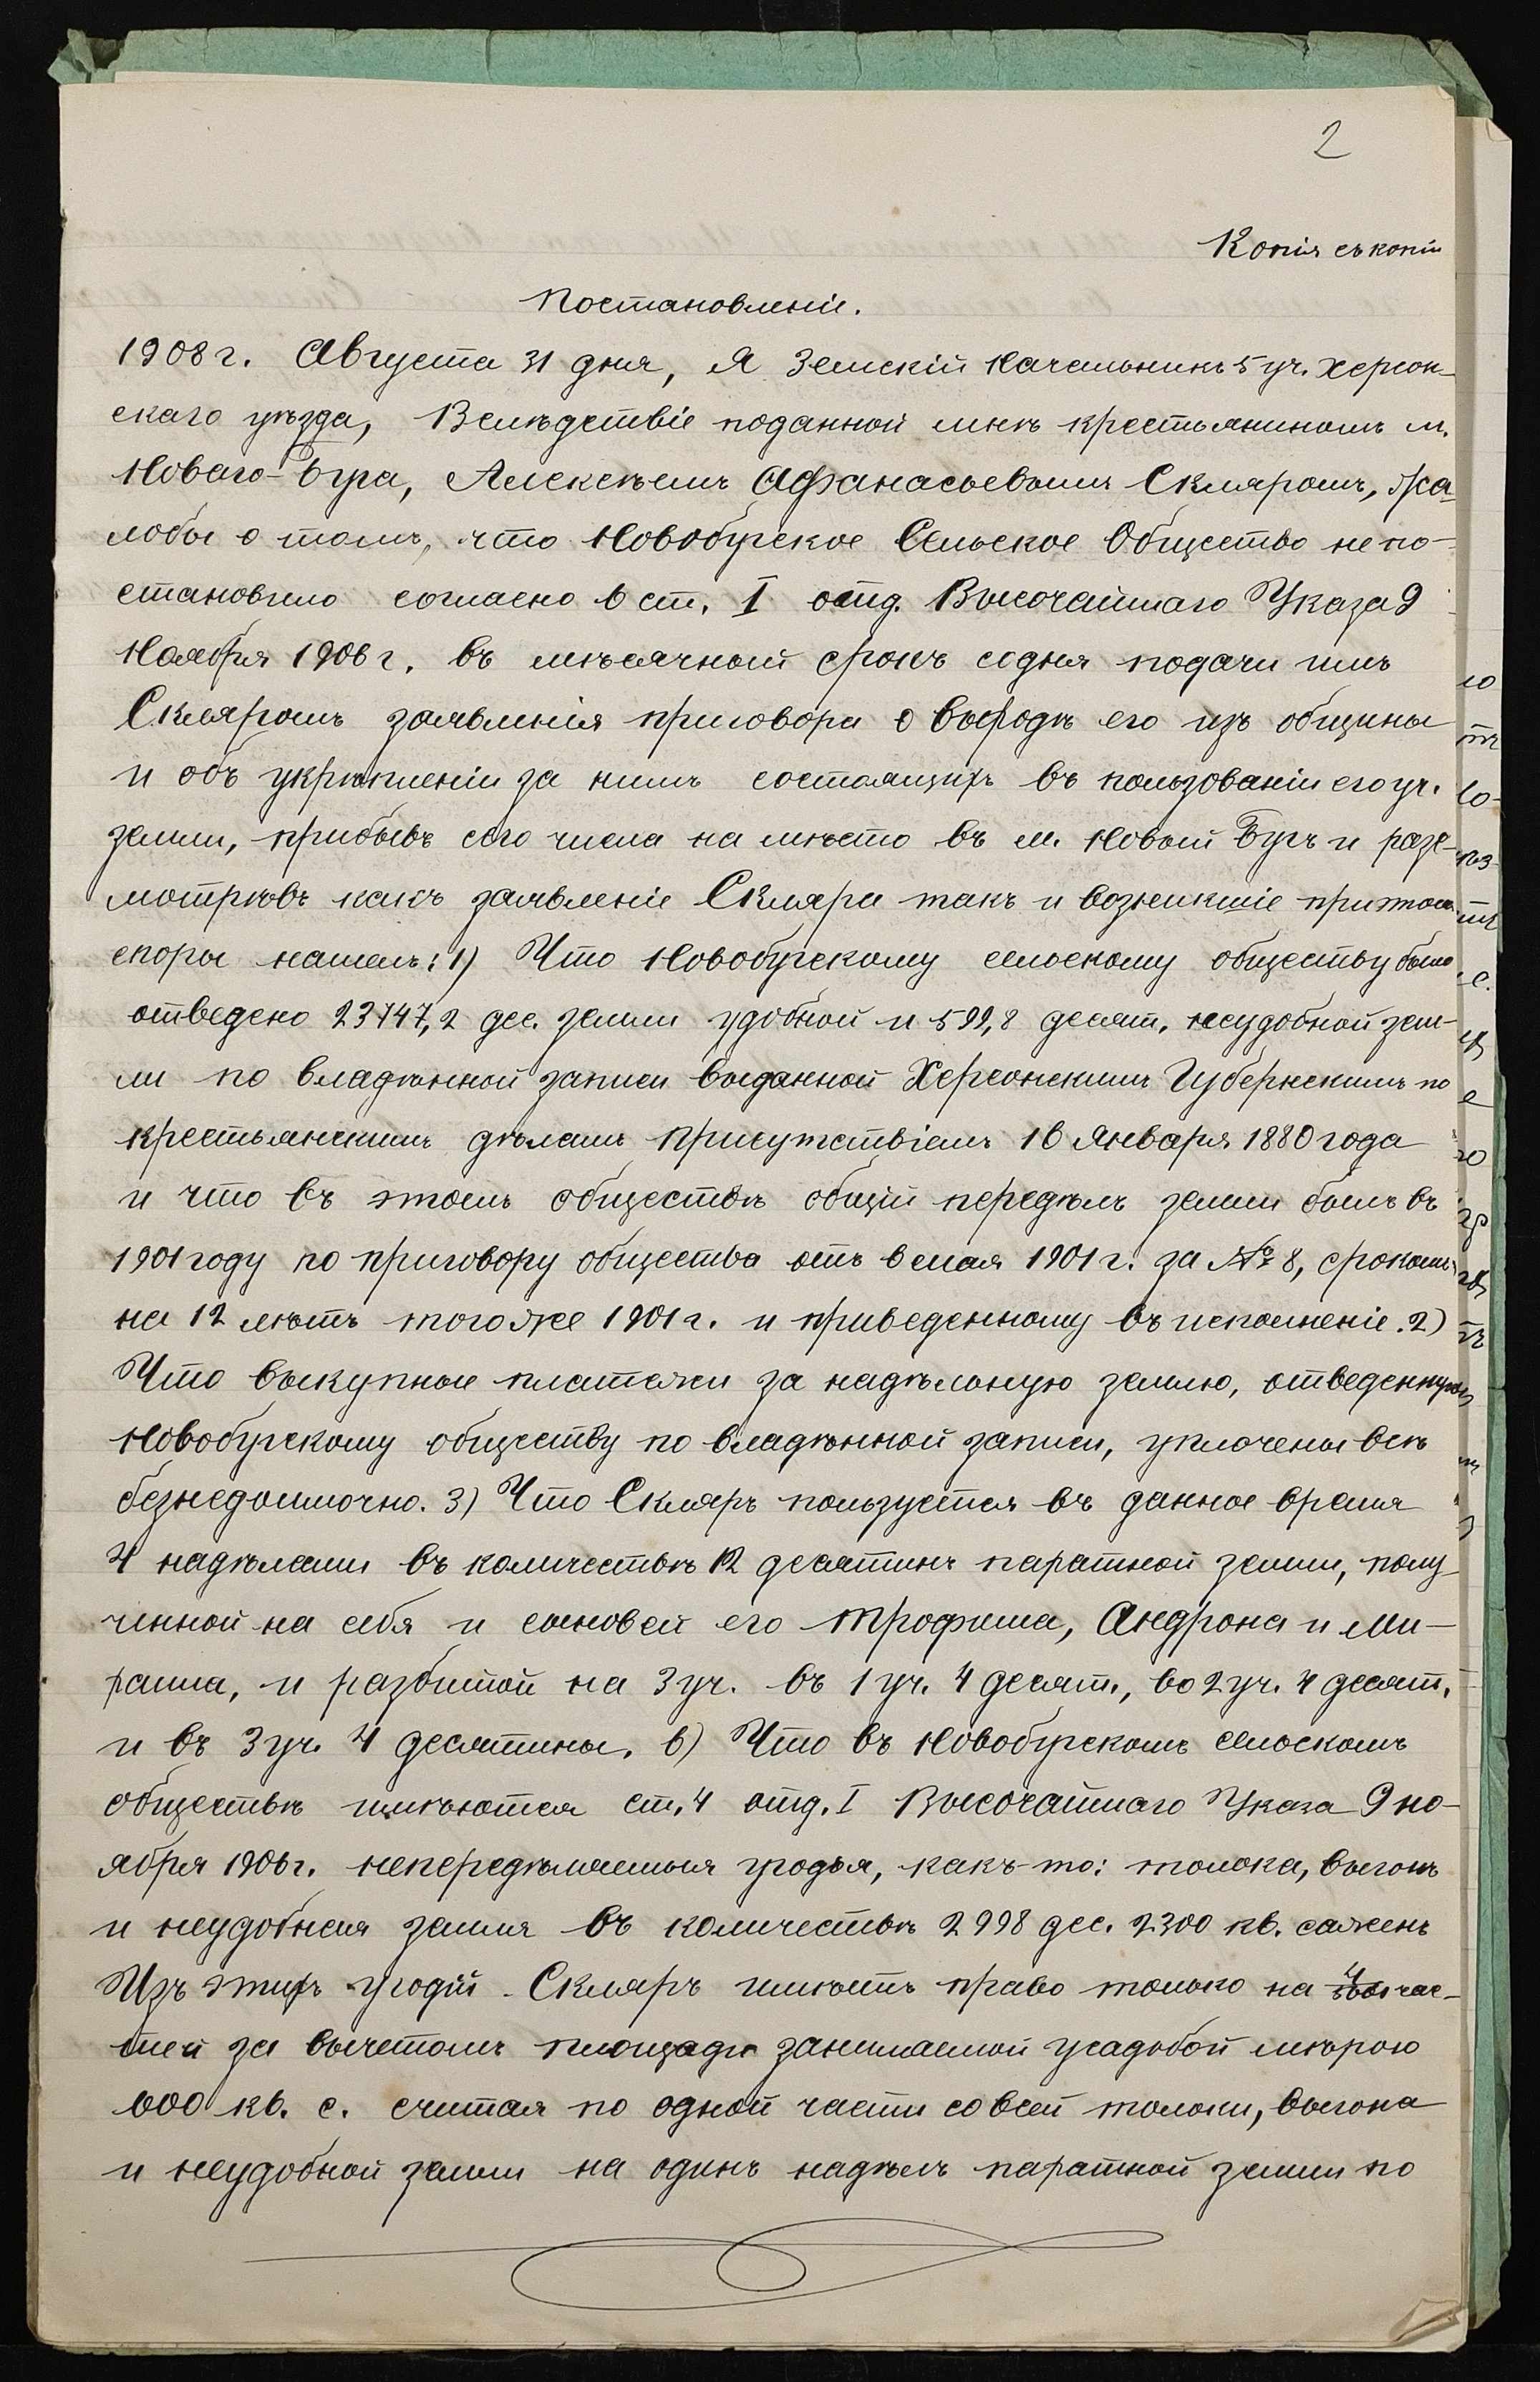 2
Копія съ копіи
Постановленіе.
1908 г. Августа 31 дня, Я Земскій Начальникъ 5 уч. Херсон-
скаго уѣзда, Вслѣдствіе поданной мнѣ крестьяниномъ м.
Новаго-Буга, Алексѣемъ Афанасьевымъ Скляромъ, жа-
лобы о томъ, что Новобугское Сельское Общество не по-
становило согласно 6 ст. I отд. Высочайшаго Указа 9
Ноября 1906 г. въ мѣсячный срокъ со дня подачи имъ
Скляромъ заявленія приговора о выходѣ его изъ общины
и объ укрѣпленіи за нимъ состоящихъ въ пользованіи его уч.
земли, прибывъ сего числа на мѣсто въ м. Новый Бугъ и разс-
мотрѣвъ какъ заявленіе Скляра такъ и возникшіе при томъ
споры нашелъ: 1) Что Новобугскому сельскому обществу было
отведено 23747,2 дес. земли удобной и 599,8 десят. неудобной зем-
ли по владѣнной записи выданной Херсонскимъ Губернскимъ по
крестьянскимъ дѣламъ Присутствіемъ 16 Января 1880 года
и что въ этомъ обществѣ общій передѣлъ земли былъ въ
1901 году по приговору общества отъ 6 мая 1901 г. за № 8, срокомъ
на 12 лѣтъ того же 1901 г. и приведенному въ исполненіе. 2)
Что выкупные платежи за надѣльную землю, отведенную
Новобугскому обществу по владѣнной записи, уплочены всѣ
безнедоимочно. 3) Что Скляръ пользуется въ данное время
4 надѣлами въ количествѣ 12 десятинъ паратной земли, полу-
ченной на себя и сыновей его Трофима, Андрона и Ми-
раима, и разбитой на 3 уч. въ 1 уч. 4 десят., во 2 уч. 4 десят.
и въ 3 уч. 4 десятины. в) Что въ Новобугскомъ сельскомъ
обществѣ имѣются ст. 4 отд. I Высочайшаго Указа 9 но-
ября 1906 г. непередѣляемыя угодья, какъ-то: толока, выгонъ
и неудобная земля въ количествѣ 2998 дес. 2300 кв. сажень
Изъ этихъ угодій Скляръ имѣетъ право только на 4 час-
тей за вычетомъ площади занимаемой усадьбой мѣрою
600 кв. с. считая по одной части со всей толоки, выгона
и неудобной земли на одинъ надѣлъ паратной земли по